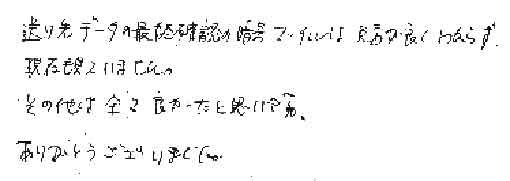 送り先データの最終確認の暗号ファイルは 見方が良くわからず、
現在頭にはせん。
その他は全て良かったと思います。
ありがとうございました。